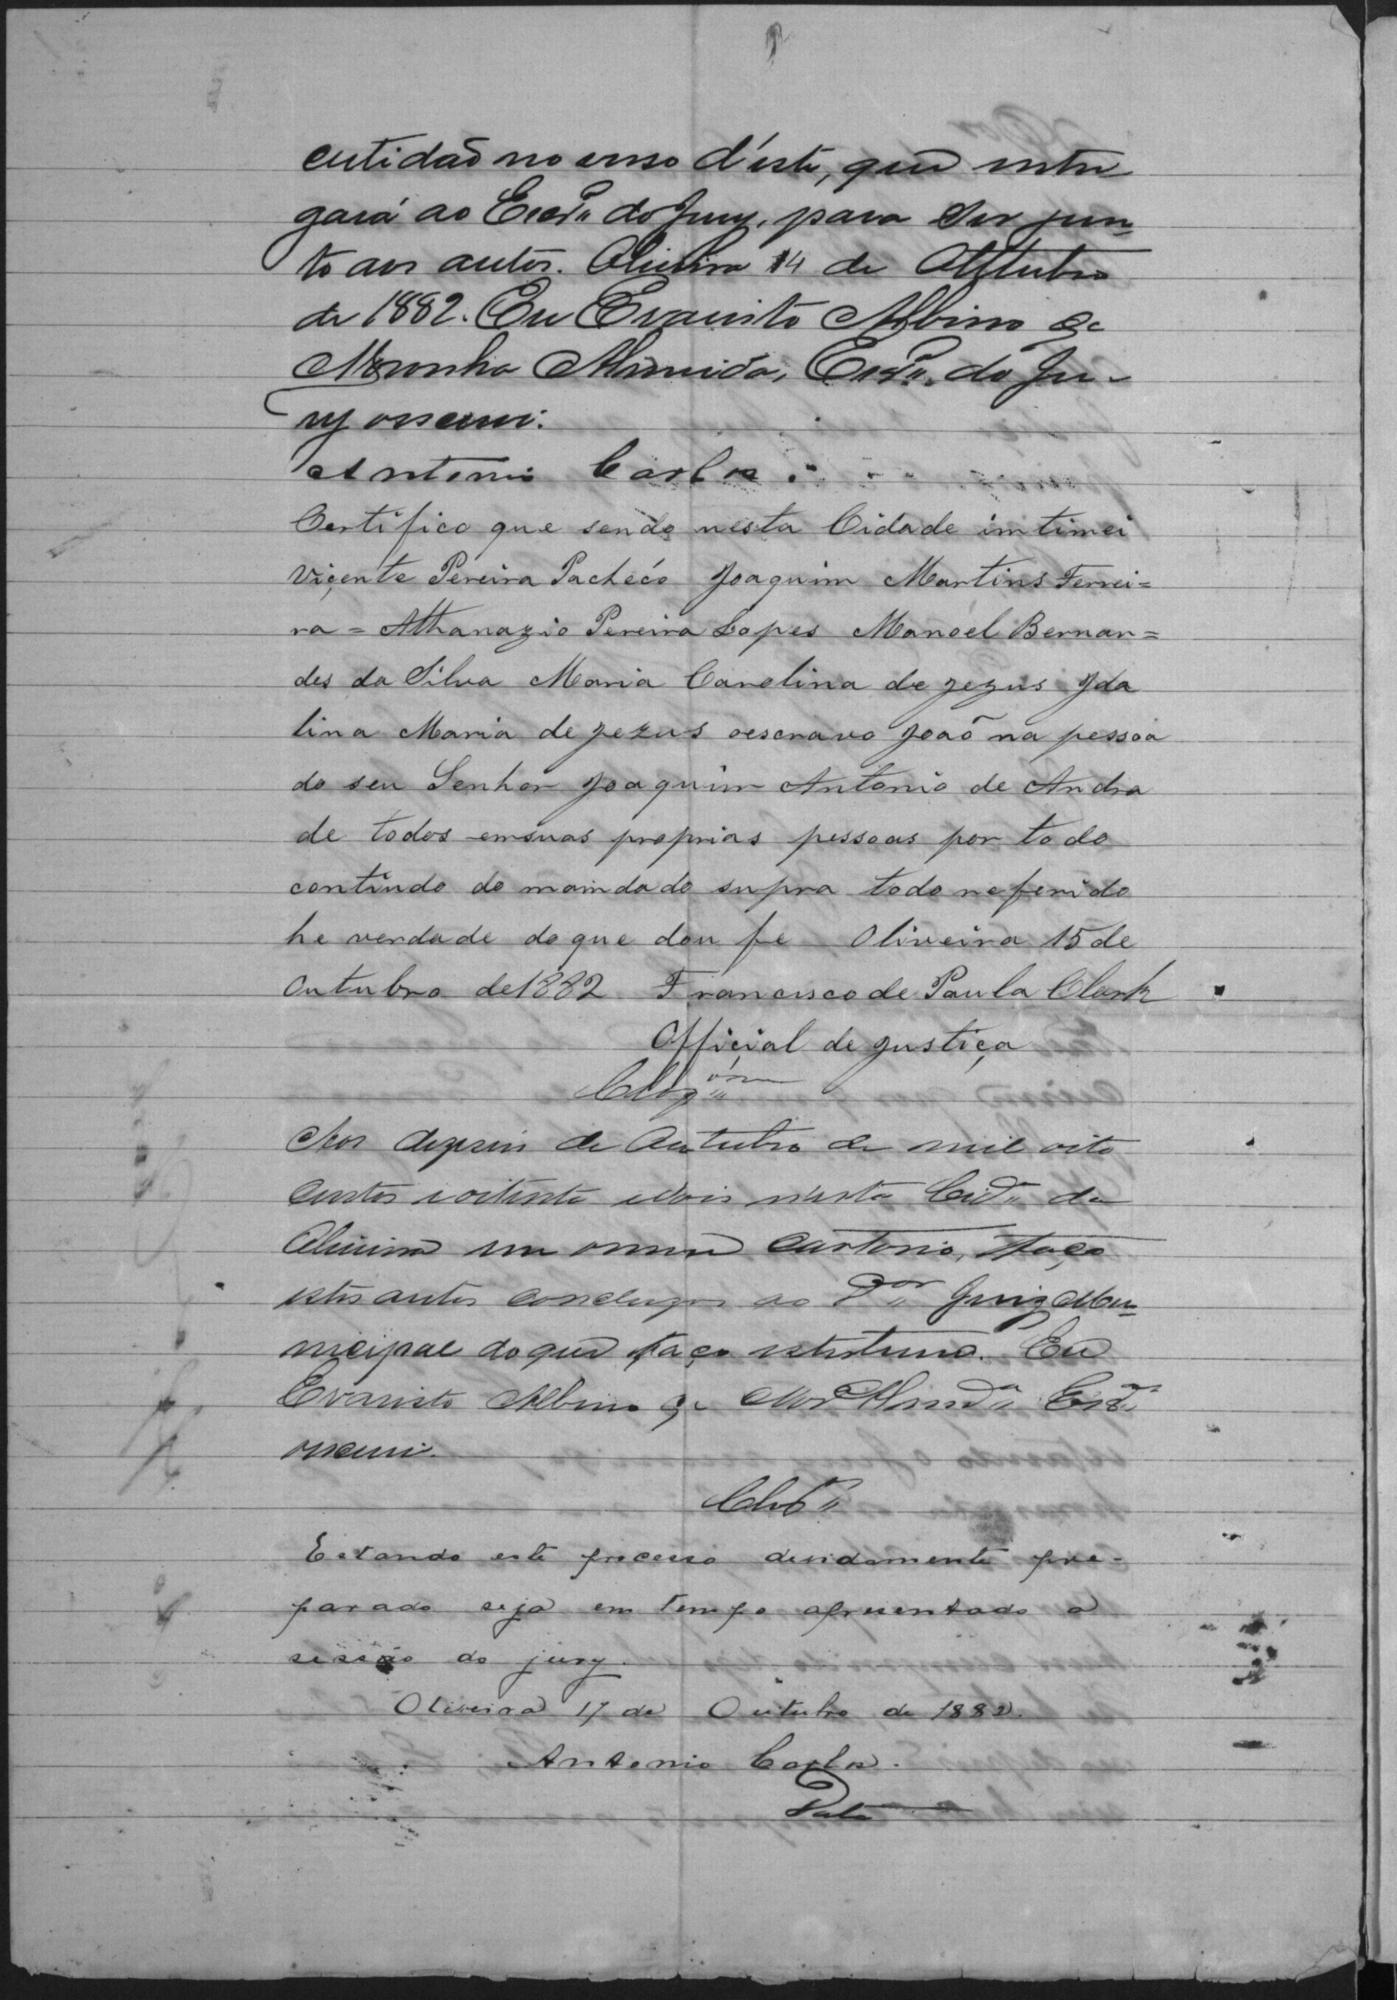 certidaõ no verso d'este, que entre
gará ao Escr.m do Jury, para ser jun-
to aos autos. Oliveira 14 de Outubro
de 1882. Eu Evaristo Albino de
Noronha Almeida, Escr.m do Ju-
ry escrevi.
Antonio Carlos.
Certifico que sendo nesta Cidade intimei
Viçente Pereira Pachéco Joaquim Martins Ferrei=
ra = Athanazio Pereira Lopes Manoel Bernar=
des da Silva Maria Carolina de Jezus Jda
lina Maria de Jezus oescravo Joaõ na pessoa
do seu Senhor Joaquim Antonio de Andra
de todos emsuas proprias pessoas por todo
contiudo do mandado supra todo referido
he verdade do que dou fe Oliveira 15 de
Outubro de 1882 Francisco de Paula Clark
Official de Justiça
Clsão
Aos dezseis de Outubro de mil oito
centos e oitenta e dois n'esta Cid.e de
Oliveira em o meu Cartorio, faço
estes autos conclusos ao D.or Juiz Mu-
nicipal do que faço este termo. Eu
Evaristo Albino de Nor.a Almd.a Escr.m
o escrevi.
Cls.
Estando este processo devidamente pre-
parado seja em tempo apresentado a
sessão do jury.
Oliveira 17 de Outubro de 1882.
Antonio Carlos.
Data